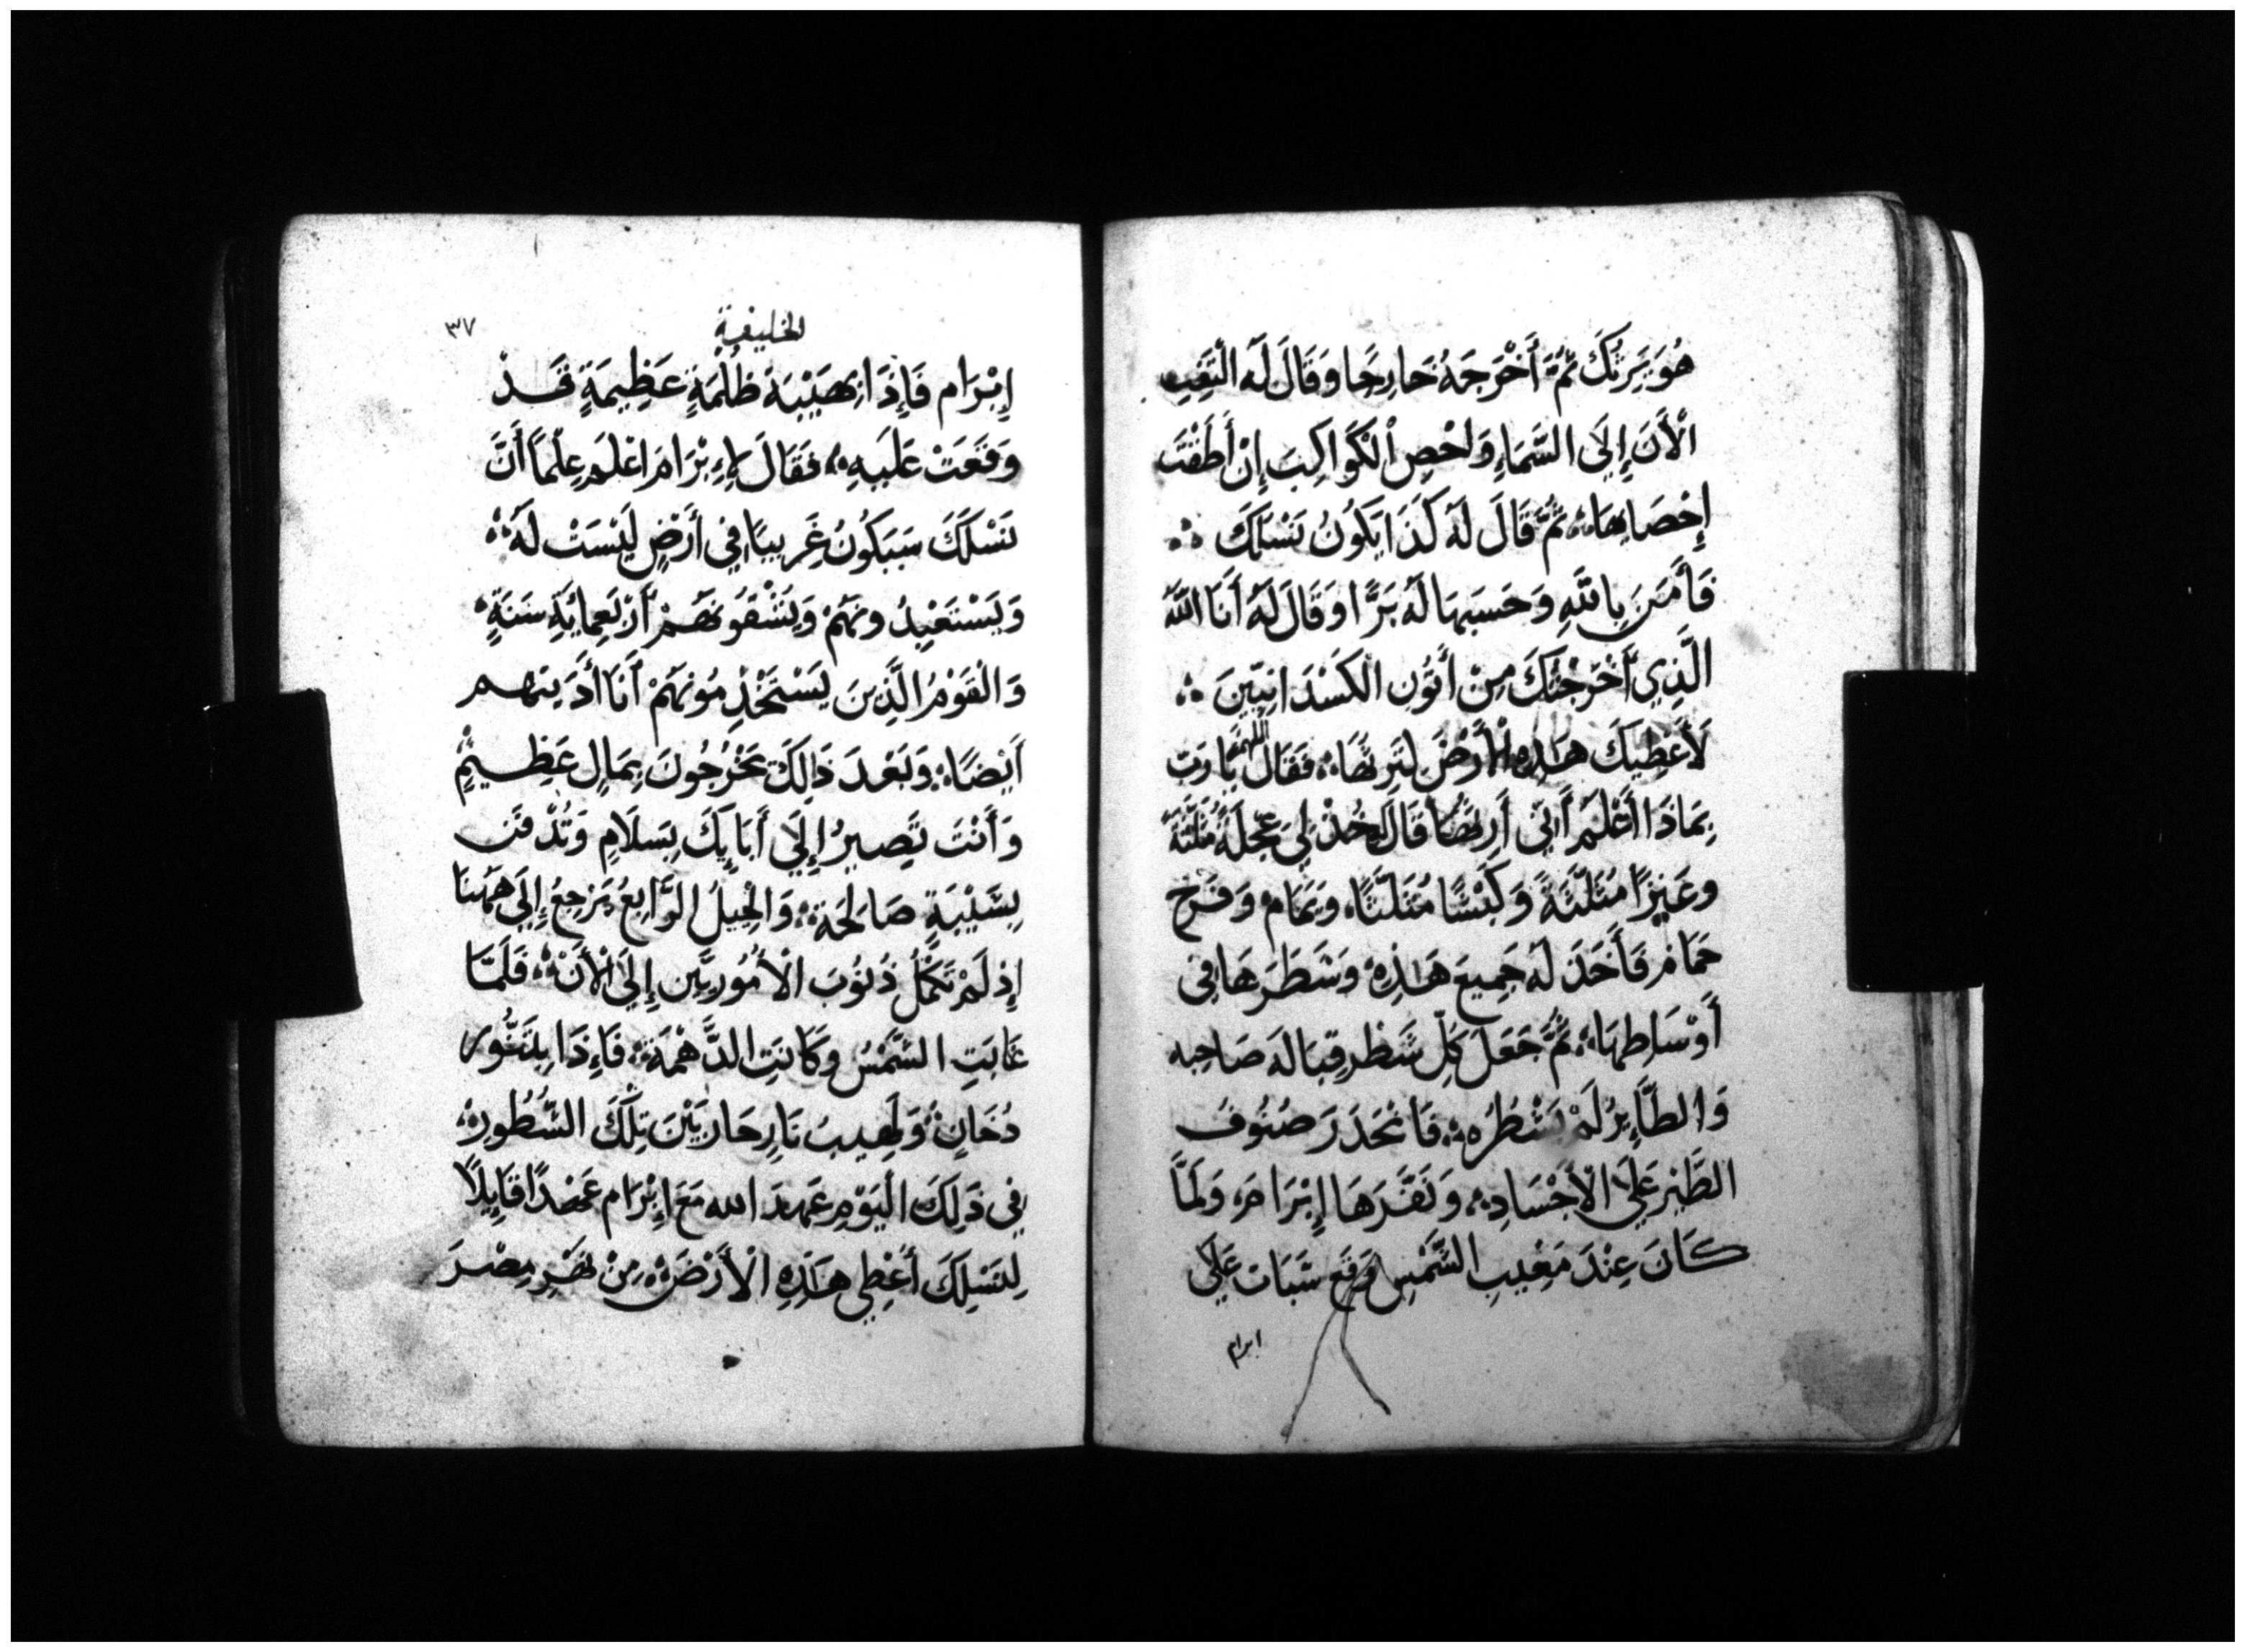 هُوَ يَرِثُكَ ثُمَّ أَخْرَجَهُ خَارِجًا وَقَالَ لَهُ الْتَفِت
الْأَنَ إِلَى السَّمَاءِ وَاحْصِ الْكَوَاكِبَ إِنْ أَطَقْتَ
إِحْصَاهَا ثُمَّ قَالَ لَهُ كَذَا يَكُونُ نَسْلُكَ
فَأَمَنَ بِاللَّهِ وَحَسَبَهَا لَهُ بَرًّا وَقَالَ لَهُ أَنَا اللَّهُ
الَّذِي أَخْرَجْتُكَ مِنْ أَتُونِ الْكَسْدَانِيِّينَ
لَأُعْطِيَكَ هَذِهِ الْأَرْضَ لِتَرِثَهَا فَقَالَ اللهم يَا رَبِّ
بِمَاذَا أَعْلَمُ أَنِّي أَرِثُهَا قَالَ خُذْ لِي عِجْلَةً مُثَلَّثَةً
وَعَنْزًا مُثَلَّثَةً وَكَبْشًا مُثَلَّثًا وَيَمَام وَفَرْخ
حَمَام فَأَخَذَ لَهُ جَمِيعَ هَذِهِ وَشَطَرَهَا فِي
أَوْسَاطِهَا ثُمَّ جَعَلَ كُلَّ شَطْرٍ قِبَالَةَ صَاحِبِه
وَالطَّائِرُ لَمْ يَشْطُرْهُ فَانْحَدَرَ صُنُوفُ
الطَّيْرِ عَلَى الْأَجْسَادِ وَنَفَّرَهَا إِبْرَامَ وَلَمَّا
كَانَ عِنْدَ مَغِيبِ الشَّمْسِ وَقَعَ سُبَات عَلَى
ابرام
الخليقة
٣٧
إِبْرَام فَإِذَا بِهَيْبَة ظُلْمَةٍ عَظِيمَةٍ قَدْ
وَقَعَتْ عَلَيهِ فَقَالَ لِإِبْرَامَ اعْلَم عِلْمًا أَنَّ
نَسْلَكَ سَيَكُونُ غَرِيبًا فِي أَرْضٍ لَيْسَتْ لَهُ
وَيَسْتَعْبِدُونَهُمْ وَيُشْقُونَهُمْ أَرْبَعِمِائَةِ سَنَةٍ
وَالْقَوْمُ الَّذِينَ يَسْتَخْدِمُونَهُمْ أَنَا أَدَينهم
أَيْضًا وَبَعْدَ ذَالِكَ يَخْرُجُونَ بِمَالٍ عَظِيمٍ
وَأَنْتَ تَصِيرُ إِلَى أَبَائِكَ بِسَلَامٍ وَتُدْفَن
بِشَيْبَةٍ صَالِحَة وَالْجِيلُ الرَّابِعُ يَرْجِعُ إِلَى هَهُنَا
إِذْ لَمْ تَكْمُلُ ذُنُوبَ الْأَمُورِيِّين إِلَى الْأَنْ فَلَمَّا
غَابَتِ الشَّمْسُ وَكَانَتِ الدَّهْمَة فَإِذَا بِتَنُّور
دُخَانٍ وَلَهِيبُ نَارٍ جَازَ بَيْنَ تِلْكَ الشُّطُورِ
فِي ذَلِكَ الْيَوْمِ عَهِدَ الله مَعَ إِبْرَام عَهْدًا قَايِلًا
لِنَسْلِكَ أُعْطِي هَذِهِ الْأَرْضَ مِنْ نَهْرِ مِصْرَ